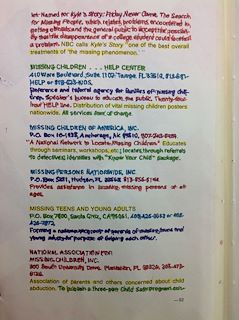 let Named for Kyle's Story: Friday Never Came. The Search
for Missing People, which relates problems encountered in
getting officials and the general public to accept the possibility
that the disappearance of a college student could be
a problem. NBC calls Kyle's Story "one of the best overall
treatments of 'the missing' phenomenon."
MISSING CHILDREN . . . HELP CENTER
410 Ware Boulevard, Suite 1102 Tampa, FL 33619,
HELP or 813-623-5437
Reference and referral agency for families of missing chil-
dren. Speaker's bureau to educate the public. Twenty-four
hour HELP line. Distribution of vital missing children posters
nationwide. All services free of charge.
MISSING CHILDREN OF AMERICA, INC.
P.O. Box 10-1938, Anchorage, AK 99510,
"A National Network to Locate Missing Children." Educates
through seminars, workshops, etc.; locates through referrals
to detectives; identifies with "Know Your Child" package.
MISSING PERSONS NATIONWIDE, INC.
P.O. Box 5331, Hudson, FL
Provides assistance in locating missing persons of all
ages.
MISSING TEENS AND YOUNG ADULTS
P.O. Box 7800, Santa Cruz, CA 95061, 408-425-3663 or 408-
426-7972
Forming a national support of parents of missing teens and
young adults for purpose of helping each other.
NATIONAL ASSOCIATION FOR
MISSING CHILDREN, INC.
300 South University Drive, Plantation, FL 33324, 305-473-
6126
Association of parents and others concerned about child
abduction. To publish a three-part Child Safe Program out-